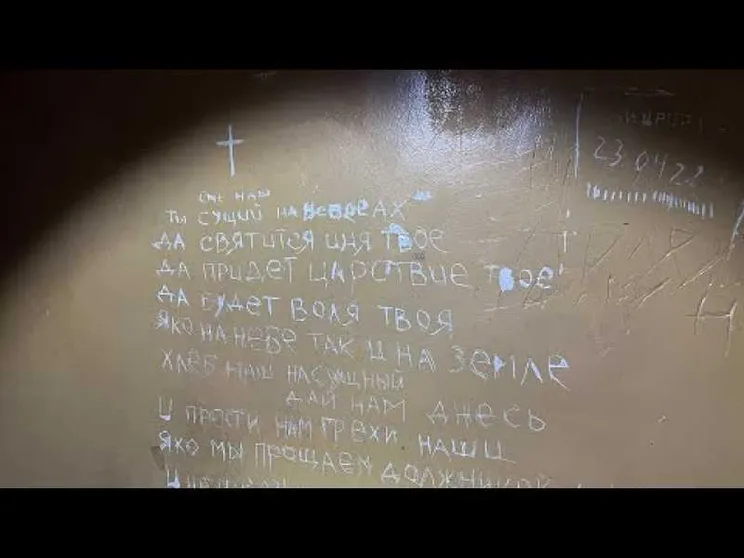 ТЫ СУЩИЙ НА НЕБЕАХ
ДА СВЯТИТСЯ ИМЯ ТВОЕ
ДА ПРИДЕТ ЦАРСТВИЕ ТВОЕ
ДА БУДЕТ ВОЛЯ ТВОЯ
ЯКО НА НЕБЕ ТАК И НА ЗЕМЛЕ
ХЛЕБ НАШ НАСУЩНЫЙ
ДАЙ НАМ ДНЕСЬ
И ПРОСТИ НАМ ГРЕХИ НАШИ
ЯКО МЫ ПРОЩАЕМ
23 04 22